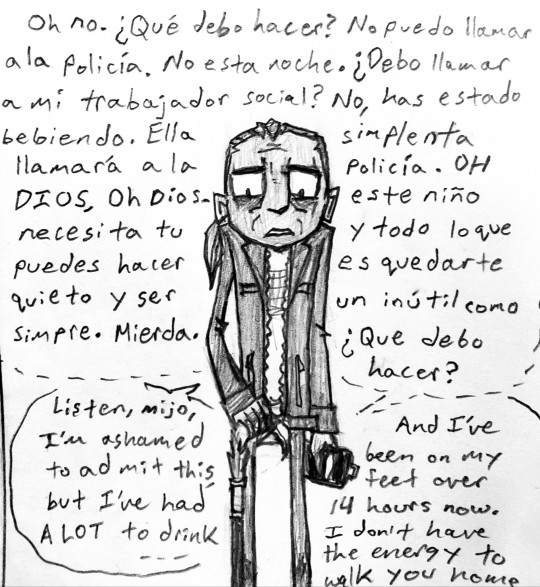 Oh no. ¿Qué debo hacer? No puedo llamar
a la policía. No esta noche. ¿Debo llamar
a mi trabajador social? No, has estado
bebiendo. Ella simplenta
llamará a la policía. OH
DIOS, Oh Dios. este niño
necesita tu y todo lo que
puedes hacer es quedarte
quieto y ser un inútil como
simpre. Mierda. ¿Que debo
hacer?
Listen, mijo,
I'm ashamed
to admit this,
but I've had
A LOT to drink
And I've
been on my
feet over
14 hours now.
I don't have
the energy to
walk you home